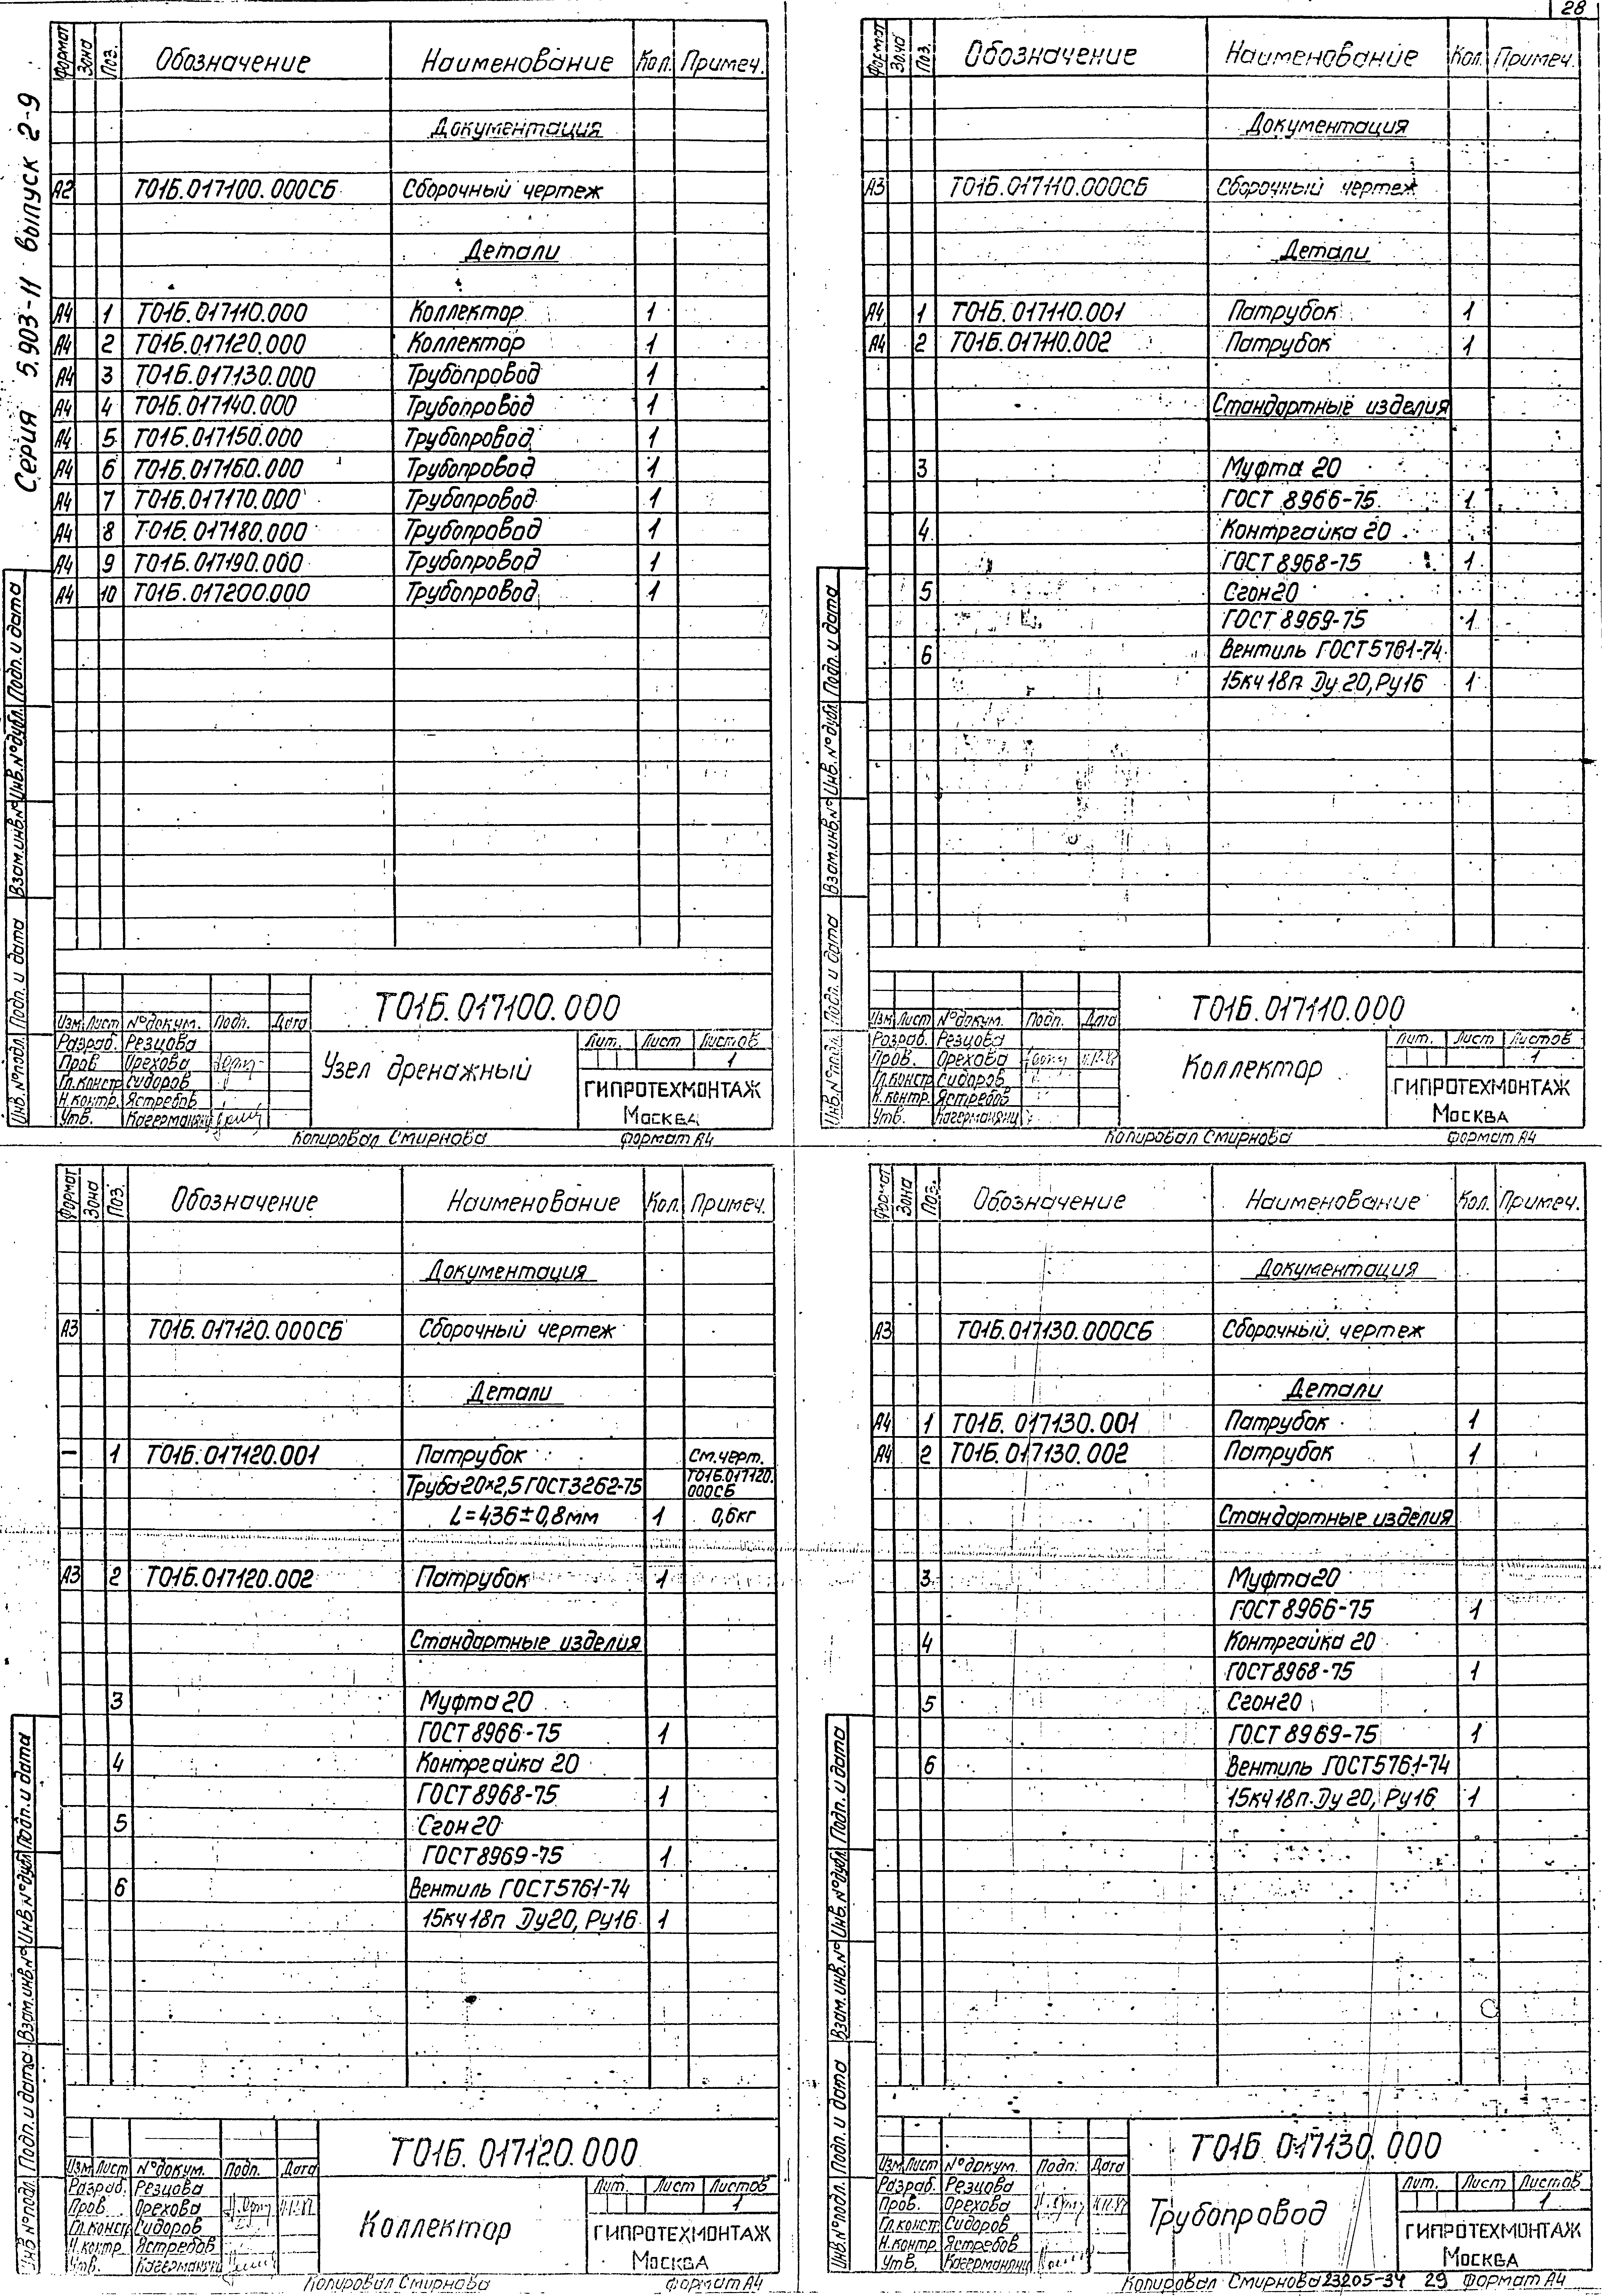 28
Серия 5.903-11 выпуск 2-9
Формат Зона Поз. Обозначение Наименование Кол. Примеч.
Документация
А2 Т01Б.017100.000СБ Сборочный чертеж
Детали
А4 1 Т01Б.017110.000 Коллектор 1
А4 2 Т01Б.017120.000 Коллектор 1
А4 3 Т01Б.017130.000 Трубопровод 1
А4 4 Т01Б.017140.000 Трубопровод 1
А4 5 Т01Б.017150.000 Трубопровод 1
А4 6 Т01Б.017160.000 Трубопровод 1
А4 7 Т01Б.017170.000 Трубопровод 1
А4 8 Т01Б.017180.000 Трубопровод 1
А4 9 Т01Б.017190.000 Трубопровод 1
А4 10 Т01Б.017200.000 Трубопровод 1
Инв.№подл. Подп. и дата Взам.инв.№ Инв.№дубл. Подп. и дата
Т01Б.017100.000
Изм. Лист №докум. Подп. Дата
Разраб. Резцова
Пров. Орехова
Гл.констр Сидоров
Н.контр. Ястребов
Утв.
Узел дренажный
Лит. Лист Листов
1
ГИПРОТЕХМОНТАЖ
Москва
Копировал Смирнова Формат А4
Формат Зона Поз. Обозначение Наименование Кол. Примеч.
Документация
А3 Т01Б.017110.000СБ Сборочный чертеж
Детали
А4 1 Т01Б.017110.001 Патрубок 1
А4 2 Т01Б.017110.002 Патрубок 1
Стандартные изделия
3 Муфта 20
ГОСТ 8966-75 1
4 Контргайка 20
ГОСТ 8968-75 1
5 Сгон20
ГОСТ 8969-75 1
6 Вентиль ГОСТ5761-74
15кч18п Ду 20, Ру16 1
Инв.№подл. Подп. и дата Взам.инв.№ Инв.№дубл. Подп. и дата
Т01Б.017110.000
Изм. Лист №докум. Подп. Дата
Разраб. Резцова
Пров. Орехова
Гл.констр Сидоров
Н.контр. Ястребов
Утв.
Коллектор
Лит. Лист Листов
1
ГИПРОТЕХМОНТАЖ
Москва
Копировал Смирнова Формат А4
Формат Зона Поз. Обозначение Наименование Кол. Примеч.
Документация
А3 Т01Б.017120.000СБ Сборочный чертеж
Детали
– 1 Т01Б.017120.001 Патрубок См.черт.
Труба20×2,5 ГОСТ3262-75 Т01Б.017120.
000СБ
L=436±0,8мм 1 0,6кг
А3 2 Т01Б.017120.002 Патрубок 1
Стандартные изделия
3 Муфта 20
ГОСТ 8966-75 1
4 Контргайка 20
ГОСТ 8968-75 1
5 Сгон 20
ГОСТ8969-75 1
6 Вентиль ГОСТ5761-74
15кч18п Ду20, Ру16 1
Инв.№подл. Подп. и дата Взам.инв.№ Инв.№дубл. Подп. и дата
Т01Б.017120.000
Изм. Лист №докум. Подп. Дата
Разраб. Резцова
Пров. Орехова
Гл.констр Сидоров
Н.контр. Ястребов
Утв.
Коллектор
Лит. Лист Листов
1
ГИПРОТЕХМОНТАЖ
Москва
Копировал Смирнова Формат А4
Формат Зона Поз. Обозначение Наименование Кол. Примеч.
Документация
А3 Т01Б.017130.000СБ Сборочный чертеж
Детали
А4 1 Т01Б.017130.001 Патрубок 1
А4 2 Т01Б.017130.002 Патрубок 1
Стандартные изделия
3 Муфта20
ГОСТ 8966-75 1
4 Контргайка 20
ГОСТ8968-75 1
5 Сгон20
ГОСТ 8969-75 1
6 Вентиль ГОСТ5761-74
15кч18п Ду 20, Ру16 1
Инв.№подл. Подп. и дата Взам.инв.№ Инв.№дубл. Подп. и дата
Т01Б.017130.000
Изм. Лист №докум. Подп. Дата
Разраб. Резцова
Пров. Орехова
Гл.констр. Сидоров
Н.контр. Ястребов
Утв.
Трубопровод
Лит. Лист Листов
1
ГИПРОТЕХМОНТАЖ
Москва
Копировал Смирнова 23205-34 29 Формат А4